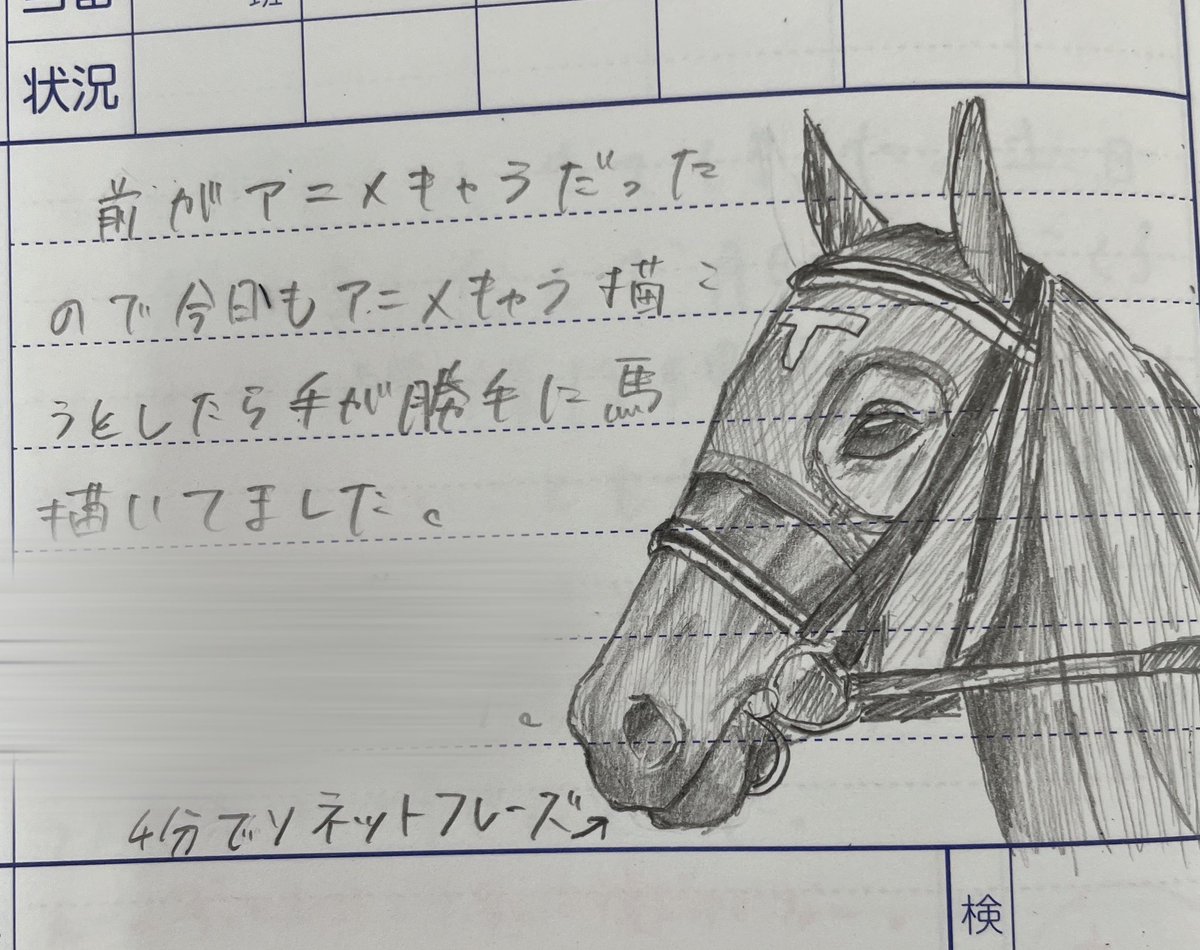 班
状況
前がアニメキャラだった
ので今日もアニメキャラ描こ
うとしたら手が勝手に馬
描いてました。
。
41分でソネットフレーズ↗
検